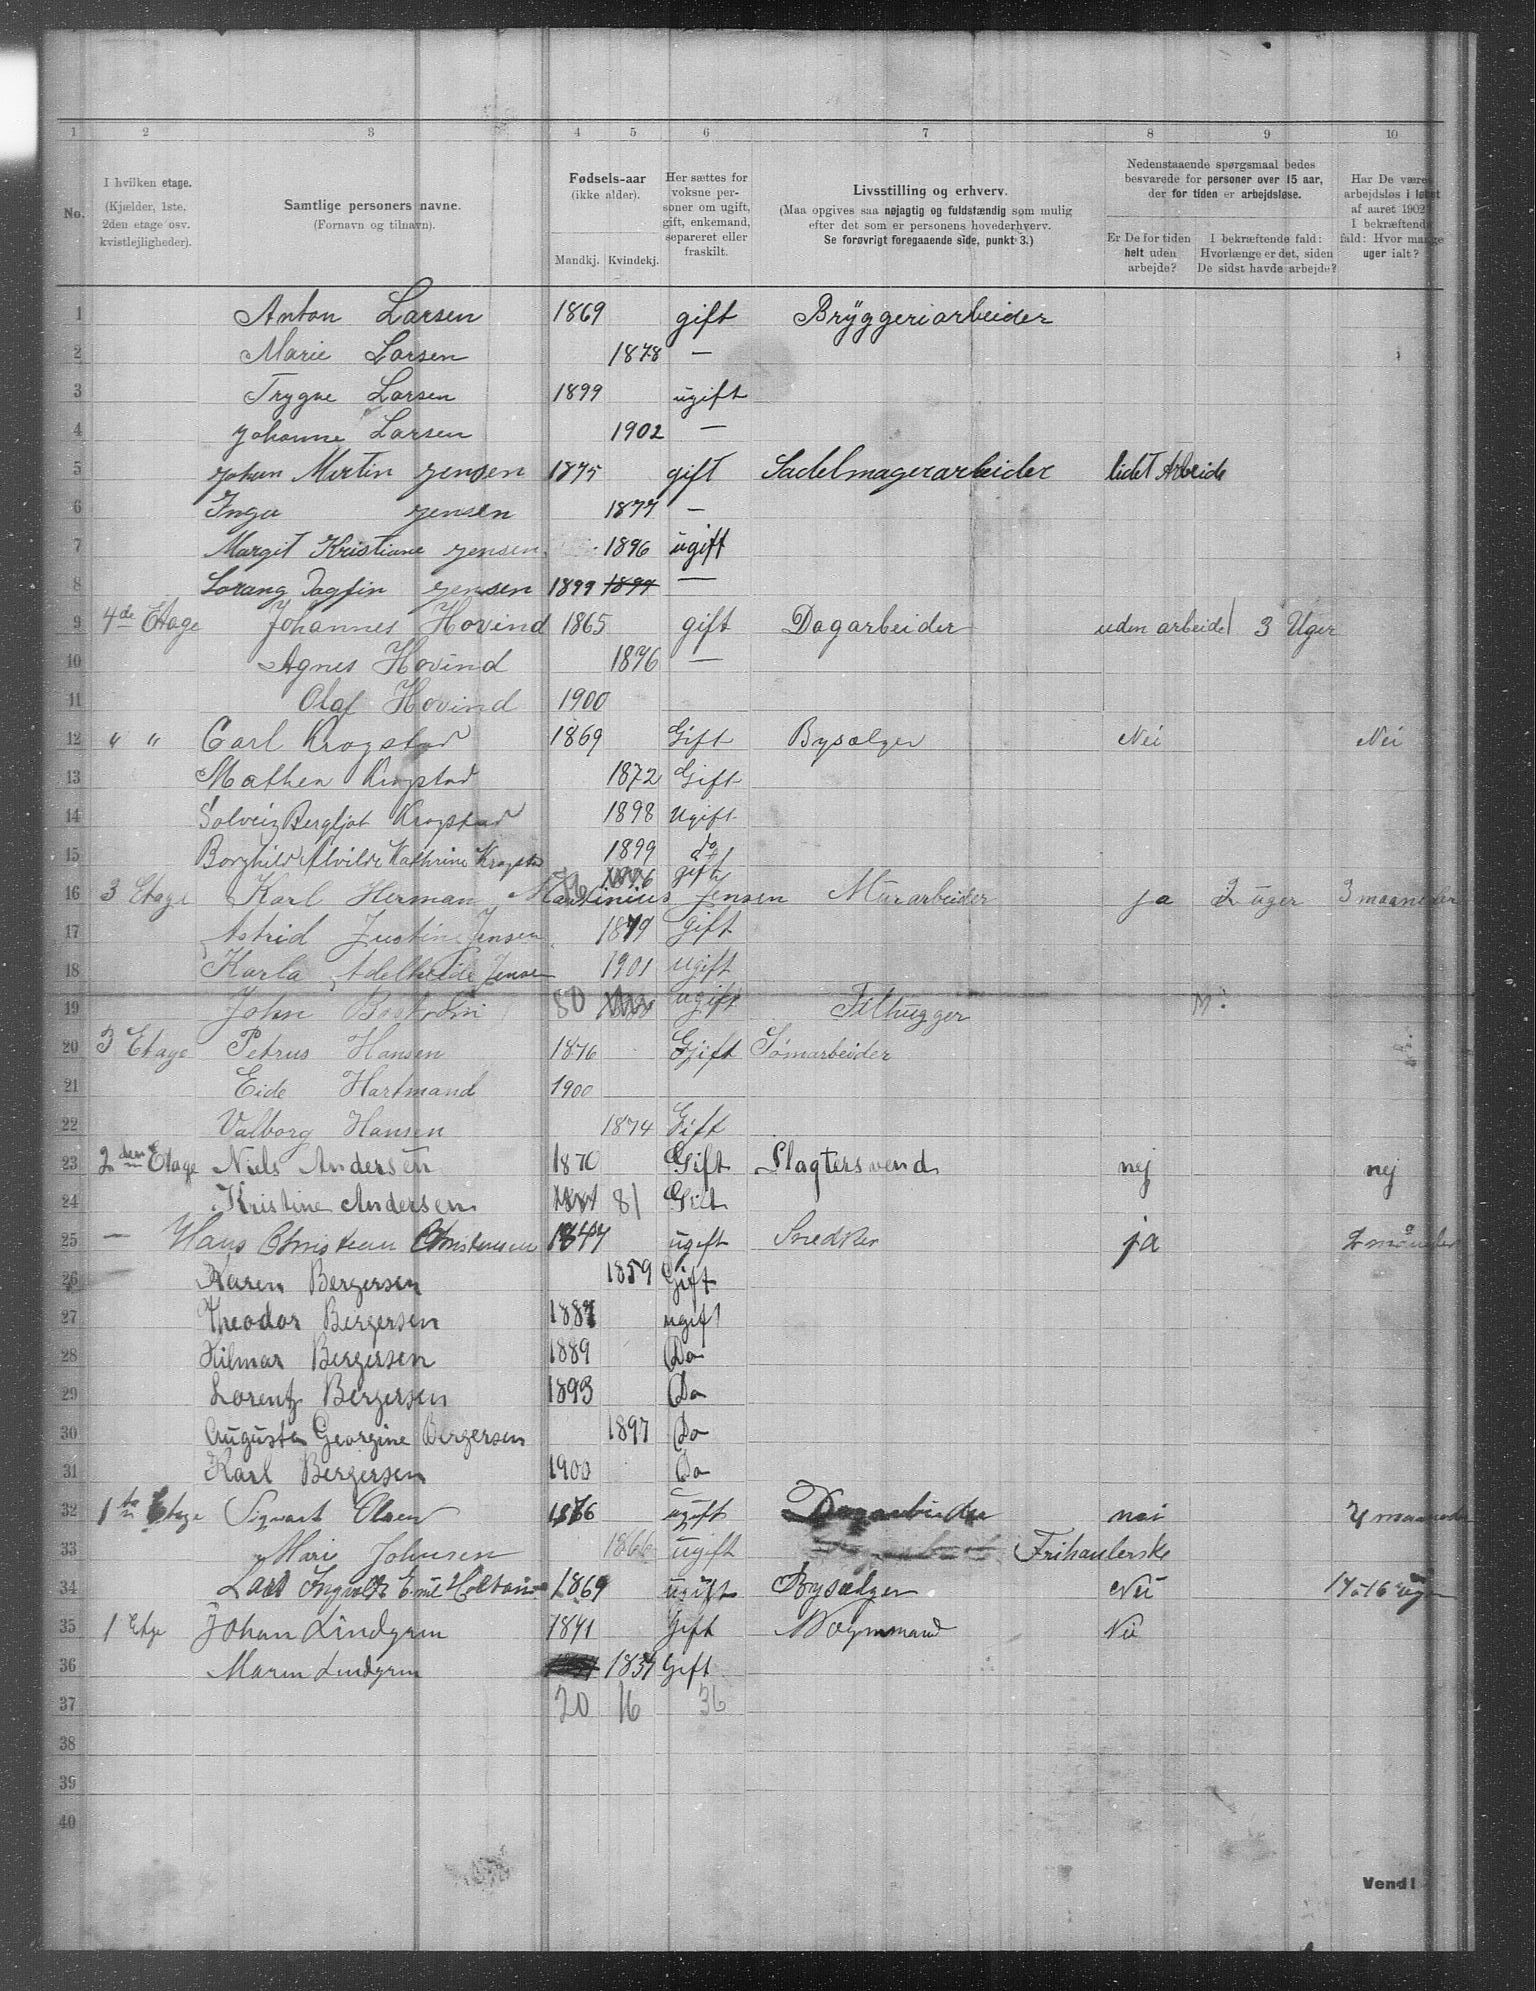 1 2 3 4 5 6 7 8 9 10
No.
I hvilken etage.
(Kjælder, 1ste,
2den etage osv.
kvistlejligheder).
Samtlige personers navne.
(Fornavn og tilnavn).
Fødsels-aar
(ikke alder).
Mandkj. Kvindekj.
Her sættes for
voksne per-
soner om ugift,
gift, enkemand,
separeret eller
fraskilt.
Livsstilling og erhverv.
(Maa opgives saa nøjagtig og fuldstændig som mulig
efter det som er personens hovederhverv.
Se forøvrigt foregaaende side, punkt 3.)
Nedenstaaende spørgsmaal bedes
besvarede for personer over 15 aar,
der for tiden er arbejdsløse.
Er De for tiden
helt uden
arbejde?
I bekræftende fald:
Hvorlænge er det, siden
De sidst havde arbejde?
Har De været
arbejdsløs i løbet
af aaret 1902?
I bekræftende
fald: Hvor mange
uger ialt?
1 Anton Larsen 1869 gift Brÿggeriarbeider
2 Marie Larsen 1878 —
3 Trygve Larsen 1899 ugift
4 Johanne Larsen 1902 —
5 Johan Martin Jensen 1875 gift Sadelmagerarbeider lidet Arbeide
6 Inga Jensen 1877 —
7 Margit Kristiane Jensen 1896 ugift
8 Lorang Dagfin Jensen 1899 1899 —
9 4de Etage Johannes Hovind 1865 gift Dagarbeider uden arbeide 3 Uger
10 Agnes Hovind 1876 —
11 Olaf Hovind 1900
12 " " Carl Krogstad 1869 Gift Bysælger Nei Nei
13 Mathea Krogstad 1872 Gift
14 Solveig Bergljot Krogstad 1898 Ugift
15 Borghild Alvilde Kathrine Krogstad 1899 do
16 3 Etage Karl Herman Martinius Jensen 76 gift Murarbeider ja 2 uger 3 maaneder
17 Astrid Justine Jensen 1879 gift
18 Karla Adelheide Jensen 1901 ugift
19 John 80 ugift Filhugger
20 3 Etage Petrus Hansen 1876 Gjift Sømarbeider
21 Eide Hartmand 1900
22 Valborg Hansen 1874 Gift
23 2den Etage Niels Andersen 1870 Gift Slagtersvend nej nej
24 Kristine Andersen 81 Gift
25 — Hans Christian Christensen 1847 ugift Snedker ja 2 måneder
26 Karen Bergersen 1859 Gift
27 Theodor Bergersen 1887 ugift
28 Hilmar Bergersen 1889 Do
29 Lorentz Bergersen 1893 Do
30 Augusta Georgine Bergersen 1897 Do
31 Karl Bergersen 1900 Do
32 1te Etage Sigvart Olsen 1876 ugift Dagarbeider nei 4 maaneder
33 Marie Johnsen 1866 ugift Frihanlerske
34 Lars Ingvald Emil 1869 ugift Bysælger Nei 14-16 uger
35 1 Etge Johan Lindgren 1841 Gift Vognmand Nei
36 Maren Lindgren 1837 Gift
37 20 16 36
38
39
40
Vend!